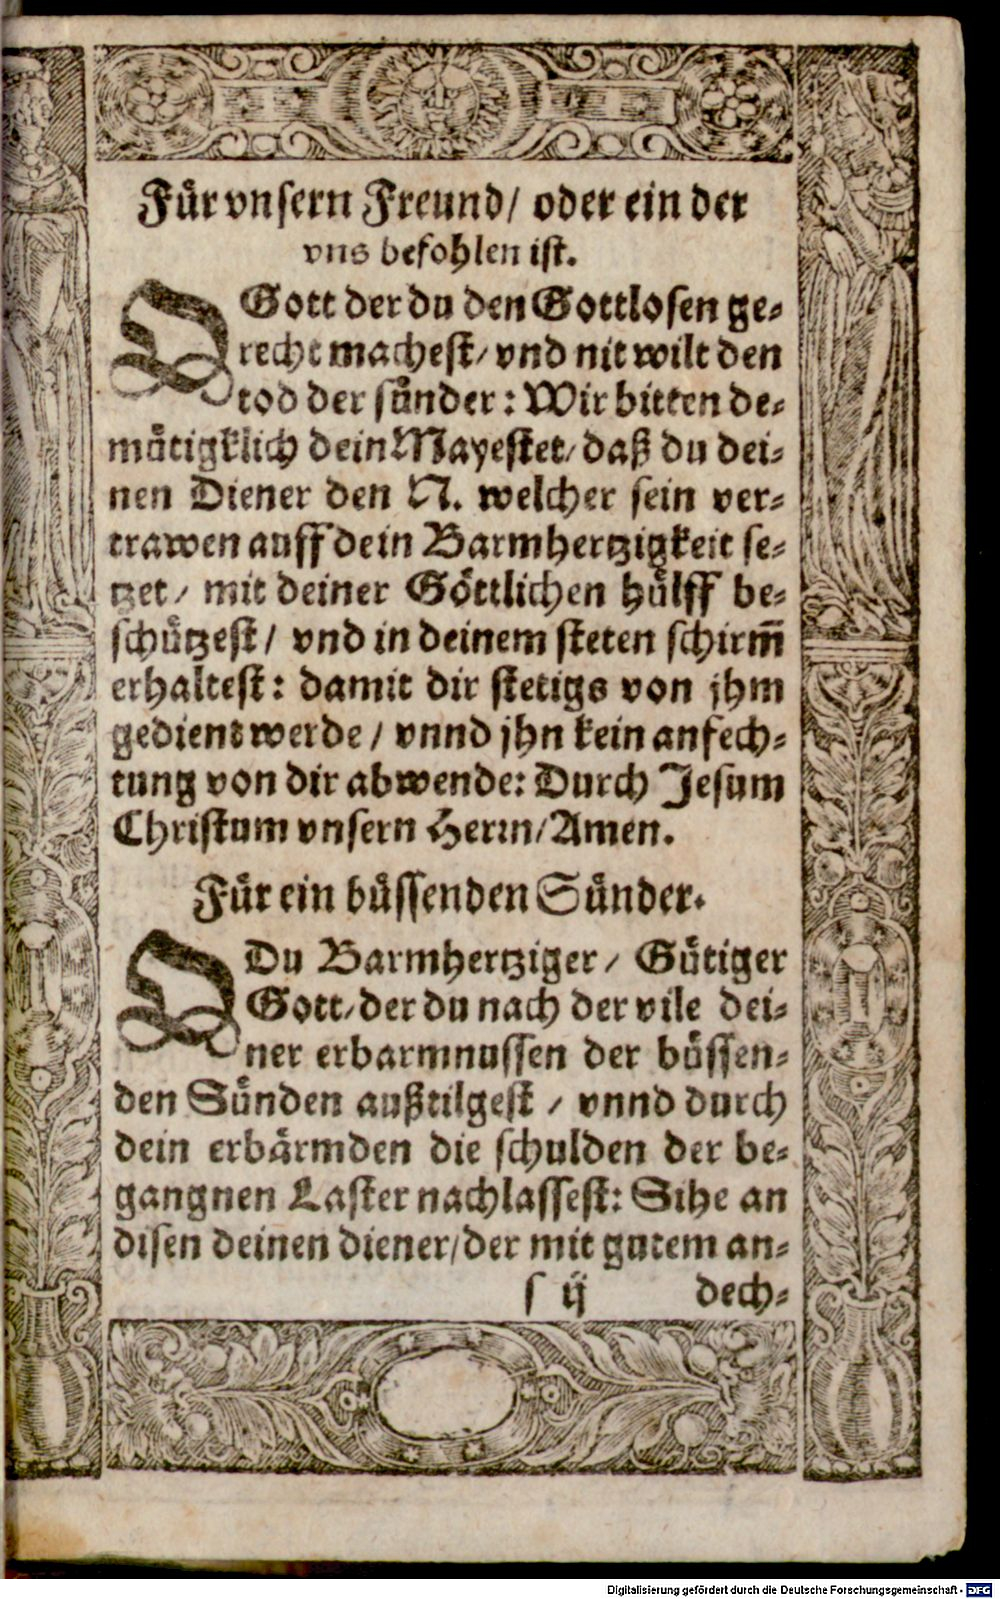 Für vnsern Freund/ oder ein der
vns befohlen ist.
O Gott der du den Gottlosen ge-
recht machest/ vnd nit wilt den
tod der sünder: Wir bitten de-
mütigklich dein Mayestet/ daß du dei-
nen Diener den N. welcher sein ver-
trawen auff dein Barmhertzigkeit se-
tzet/ mit deiner Göttlichen hülff be-
schützest/ vnd in deinem steten schirm̃
erhaltest: damit dir stetigs von jhm
gedient werde/ vnnd jhn kein anfech-
tung von dir abwende: Durch Jesum
Christum vnsern Herrn/ Amen.
Für ein büssenden Sünder.
O Du Barmhertziger/ Gütiger
Gott/ der du nach der vile dei-
ner erbarmnussen der büssen-
den Sünden außtilgest/ vnnd durch
dein erbärmden die schulden der be-
gangnen Laster nachlassest: Sihe an
disen deinen diener/ der mit gutem an-
s ij dech-
Digitalisierung gefördert durch die Deutsche Forschungsgemeinschaft - DFG